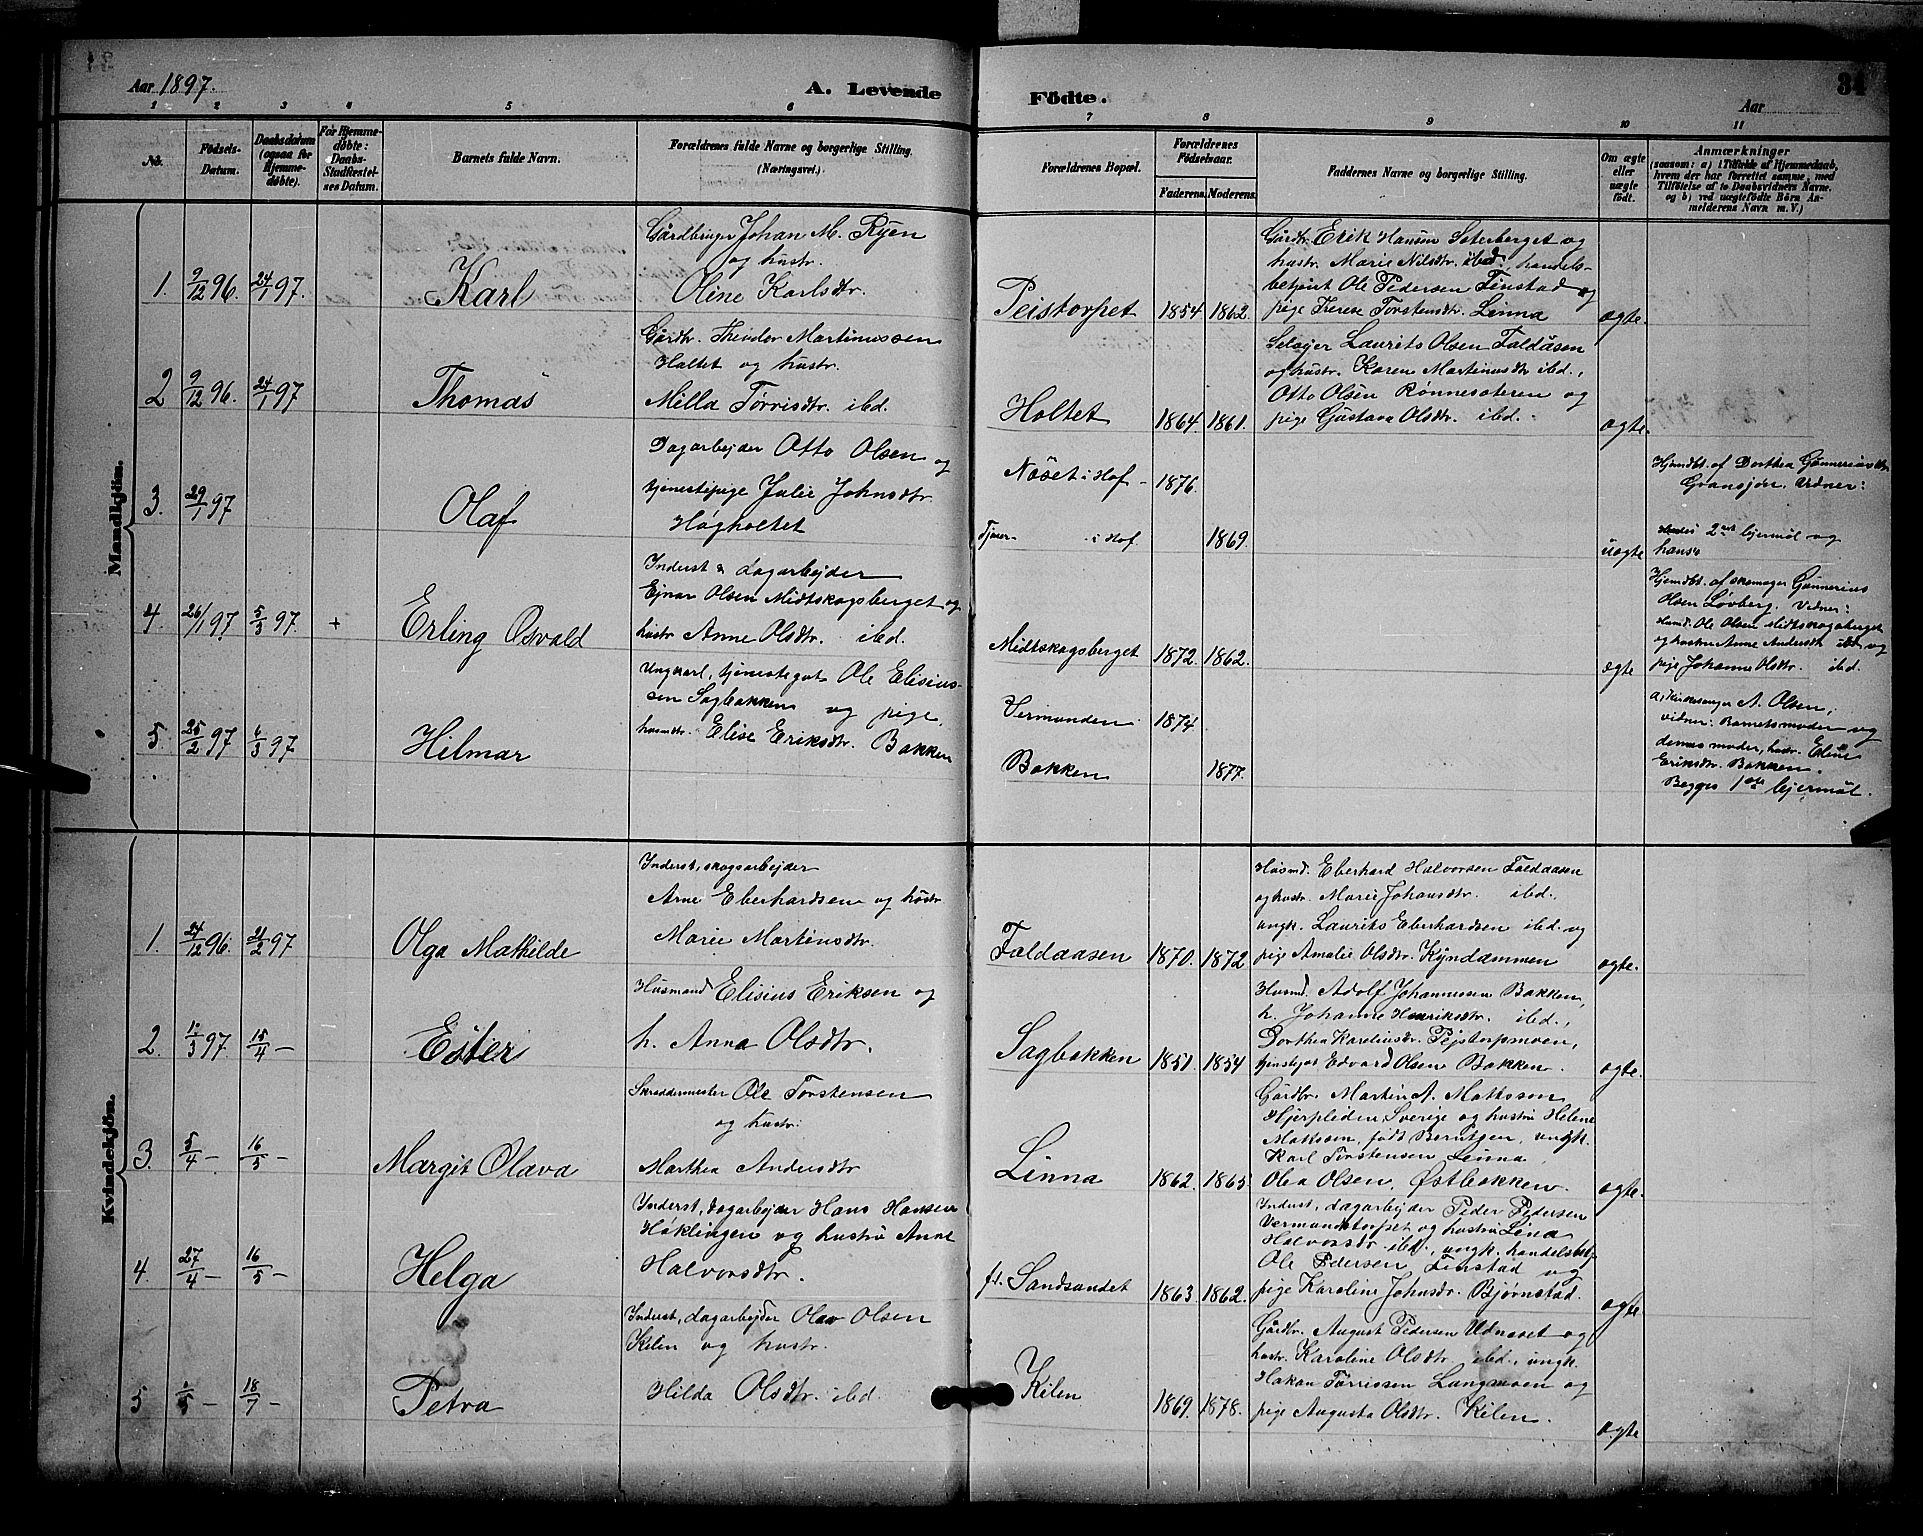 Aar 1897. A. Levende Födte. Aar 34
1 2 3 4 5 6 7 8 9 10 11
No. Födsels-Datum. Daabsdatum (ogsaa for Hjemmedöbte). For Hjemmedöbte: Daabs-Stadfæstelses Datum. Barnets fulde Navn. Forældrenes fulde Navne og borgerlige Stilling. (Næringsvei.) Forældrenes Bopæl. Forældrenes Födselsaar. Faderens. Moderens. Faddernes Navne og borgerlige Stilling. Om ægte eller uægte födt. Anmærkninger (saasom: a) i Tilfælde af Hjemmedaab, hvem der har forrettet samme, med Tilföielse af to Daabsvidners Navne, og b) ved uægtefödte Börn Anmelderens Navn m.V.)
Mandkjön.
1. 9/12 96. 24/1 97. Karl
Gårdbruger Johan M. Ryen
og hustr.
Oline Karlsdtr.
Peistorpet 1854 1862.
Gårdbr. Erik Hansen Säterberget og
hustr. Marie Nilsdtr. ibd. handels-
betjent Ole Pedersen Finstad og
pige Terese Torstensdtr. Linna
ægte.
2 9/12 96. 24/1 97 Thomas
Gårdbr. Theodor Martinussen
Holtet og hustr.
Milla Törrisdtr. ibd.
Holtet 1864. 1861.
Selveier Laurits Olsen Faldåsen
og hustr. Karen Martinusdtr ibd.,
Otto Olsen Rønnesæteren og
pige Gustava Olsdtr. ibd.
ægte.
3. 29/1 97 Olaf
Dagarbejder Otto Olsen og
tjenestepige Julie Johnsdtr.
Høgholtet
Nöset i Hof 1876.
Tjener i Hof 1869.
uægte
Hjemdbt. af Dorthea Gunneriusdtr
Gransjøn. Vidner:
2det lejermöl og
hans
4. 26/1 97 5/3 97. + Erling Osvald
Inderst & Dagarbejder
Ejnar Olsen Midtskogsberget og
hustr. Anne Olsdtr. ibd.
Midtskogsberget 1872. 1862.
ægte
Hjemdbt. af skomager Gunnerius
Olsen Løvberg. Vidner:
Husmd. Ole Olsen Midtskogsberget
og hustru Anne Andersdtr ibd og
pige Johanne Olsdtr. ibd.
5. 25/2 97 6/3 97 Hilmar
Ungkarl, tjenestegut Ole Elisius-
sen Sagbakken og pige,
husmdtr. Elise Eriksdtr. Bakken
Vermunden 1874
Bakken 1877.
a, Kirkesanger A. Olsen,
vidner: Barnets moder og
dennes moder, hustr. Eline
Eriksdtr. Bakken.
Begges 1ste lejermöl.
Kvindekjön.
1. 24/12 96. 21/2 97 Olga Mathilde
Inderst, skogsarbejder
Arne Eberhardsen og hustr
Marie Martinsdtr.
Faldaasen 1870. 1872
Husmd. Eberhard Halvorsen Faldaasen
og hustr. Marie Johansdtr. ibd.
ungk. Laurits Eberhardsen ibd. og
pige Amalie Olsdtr. Kyndammen
ægte.
2. 1/3 97. 15/4 – Ester
Husmand Elisius Eriksen og
h. Anna Olsdtr.
Sagbakken 1851. 1854
Husmd. Adolf Johannessen Bakken,
h. Johanne Henriksdtr. ibd.,
Dorthea Kareliusdtr. Pejstorpmoen,
tjenstgut Edvard Olsen Bakken.
ægte.
3. 5/4 – 16/5 – Margit Olava
Skreddermester Ole Torstensen
og hustr:
Marthea Andersdtr
Linna 1862. 1865
Gårdbr. Martin A. Mattsson
Hjerpliden, Sverige og hustru Helene
Mattsson, født Berntzen, ungk.
Karl Torstensen Linna,
Olea Olsen, Østbakken.
ægte.
4. 27/4 – 16/5 – Helga
Inderst, dagarbejder Hans Hansen
Haklingen og hustru Anne
Halvorsdtr.
fr. Sandsandet 1863 1862.
Inderst, dagarbejder Peder Pedersen
Vermundstorpet og hustru Lina
Halvorsdr. ibd., ungk. handelsbetj.
Ole Pedersen Finstad og
pige Karoline Johnsdr. Bjørnstad.
ægte
5 /5 – 18/7 – Petra
Inderst, dagarbejder Olav Olsen
Kilen og hustr.
Hilda Olsdtr. ibd.
Kilen 1869. 1878.
Gårdbr. August Pedersen Udnæset og
hustr. Karoline Olsdtr ibd., ungk.
Hakan Tørrissen Langmoen og
pige Augusta Olsdtr. Kilen.
ægte